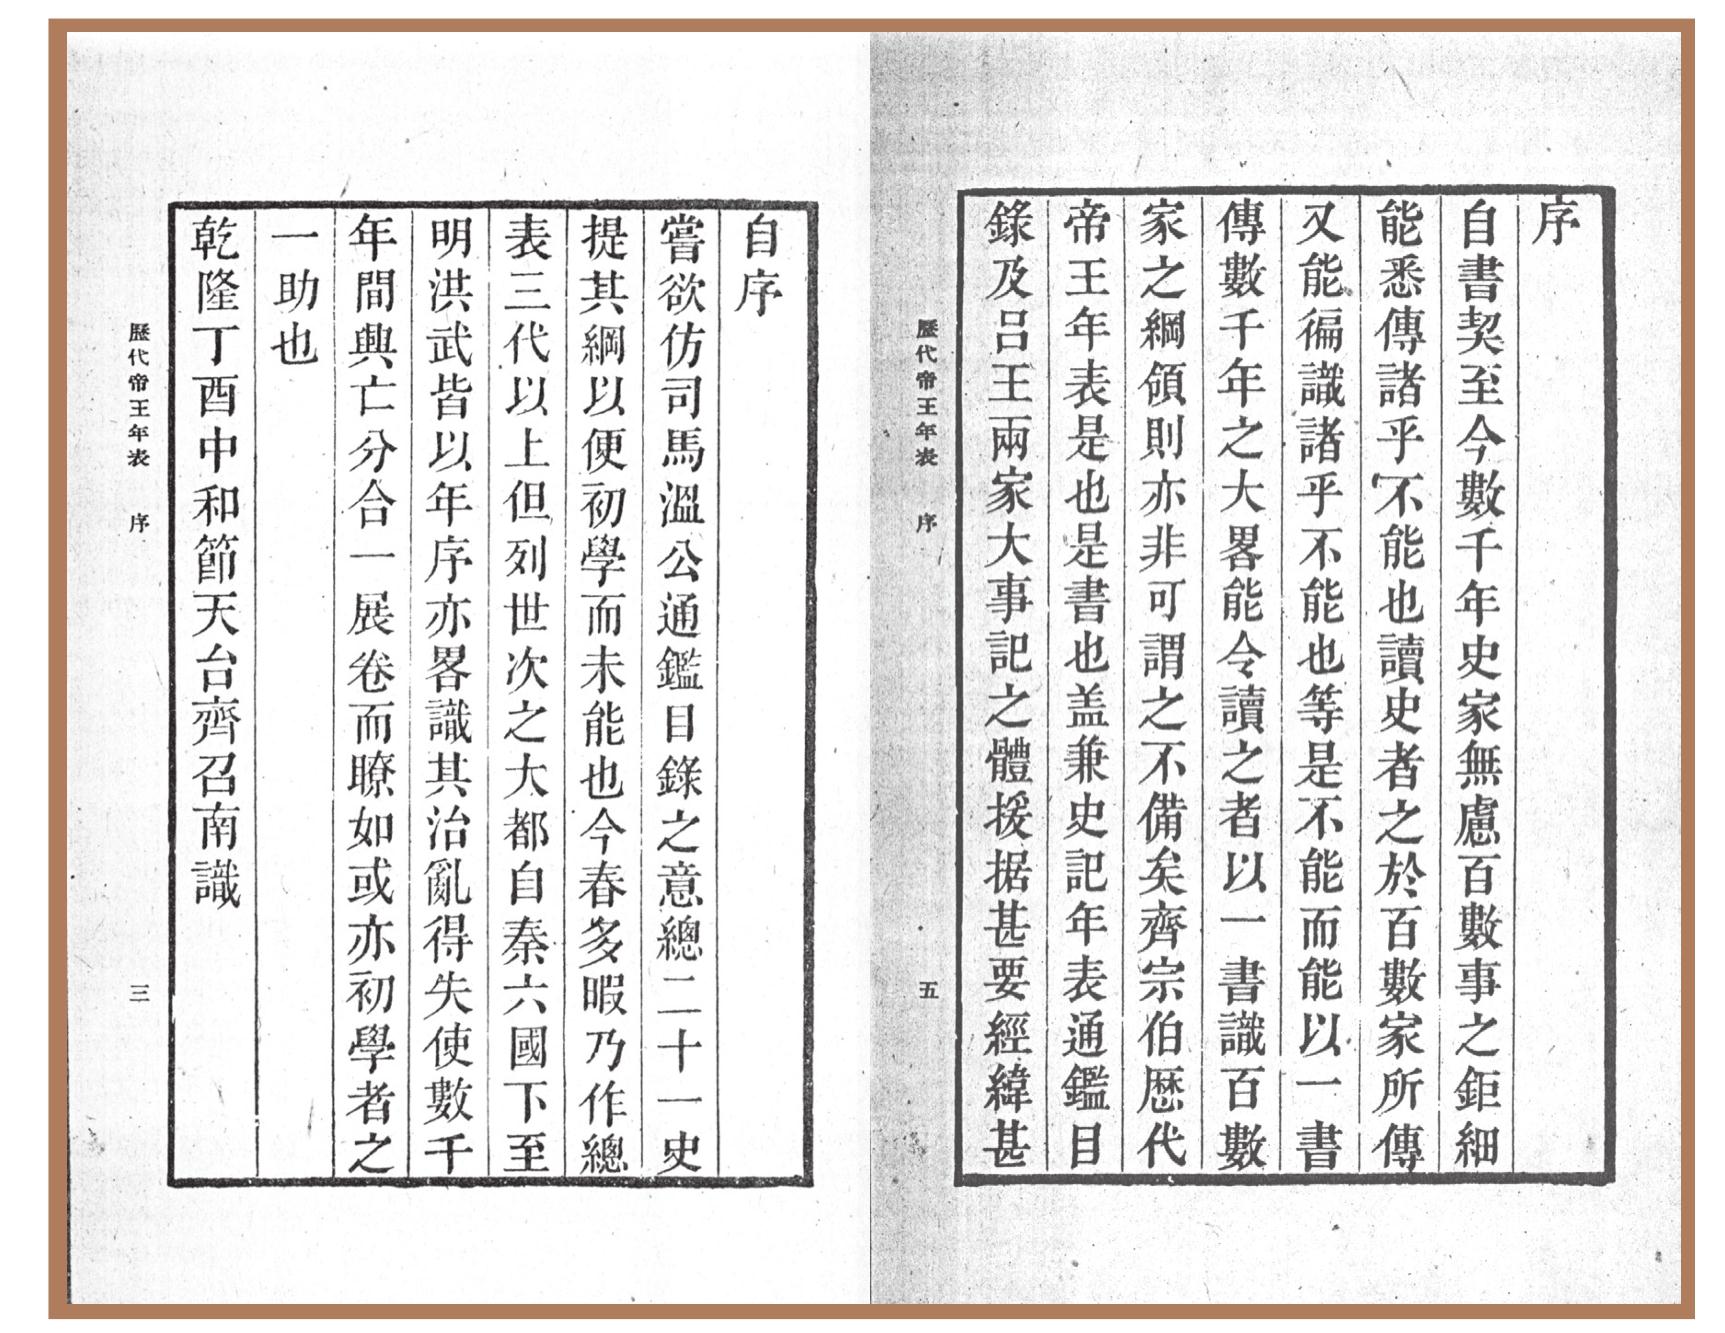 序
自書契至今數千年史家無慮百數事之鉅細
能悉傳諸乎不能也讀史者之於百數家所傳
又能徧識諸乎不能也等是不能而能以一書
傳數千年之大畧能令讀之者以一書識百數
家之綱領則亦非可謂之不備矣齊宗伯歷代
帝王年表是也是書也盖兼史記年表通鑑目
錄及呂王兩家大事記之體援据甚要經緯甚
歷代帝王年表 序 五
自序
嘗欲仿司馬溫公通鑑目錄之意總二十一史
提其綱以便初學而未能也今春多暇乃作總
表三代以上但列世次之大都自秦六國下至
明洪武皆以年序亦畧識其治亂得失使數千
年間興亡分合一展卷而瞭如或亦初學者之
一助也
乾隆丁酉中和節天台齊召南識
歷代帝王年表 序 三